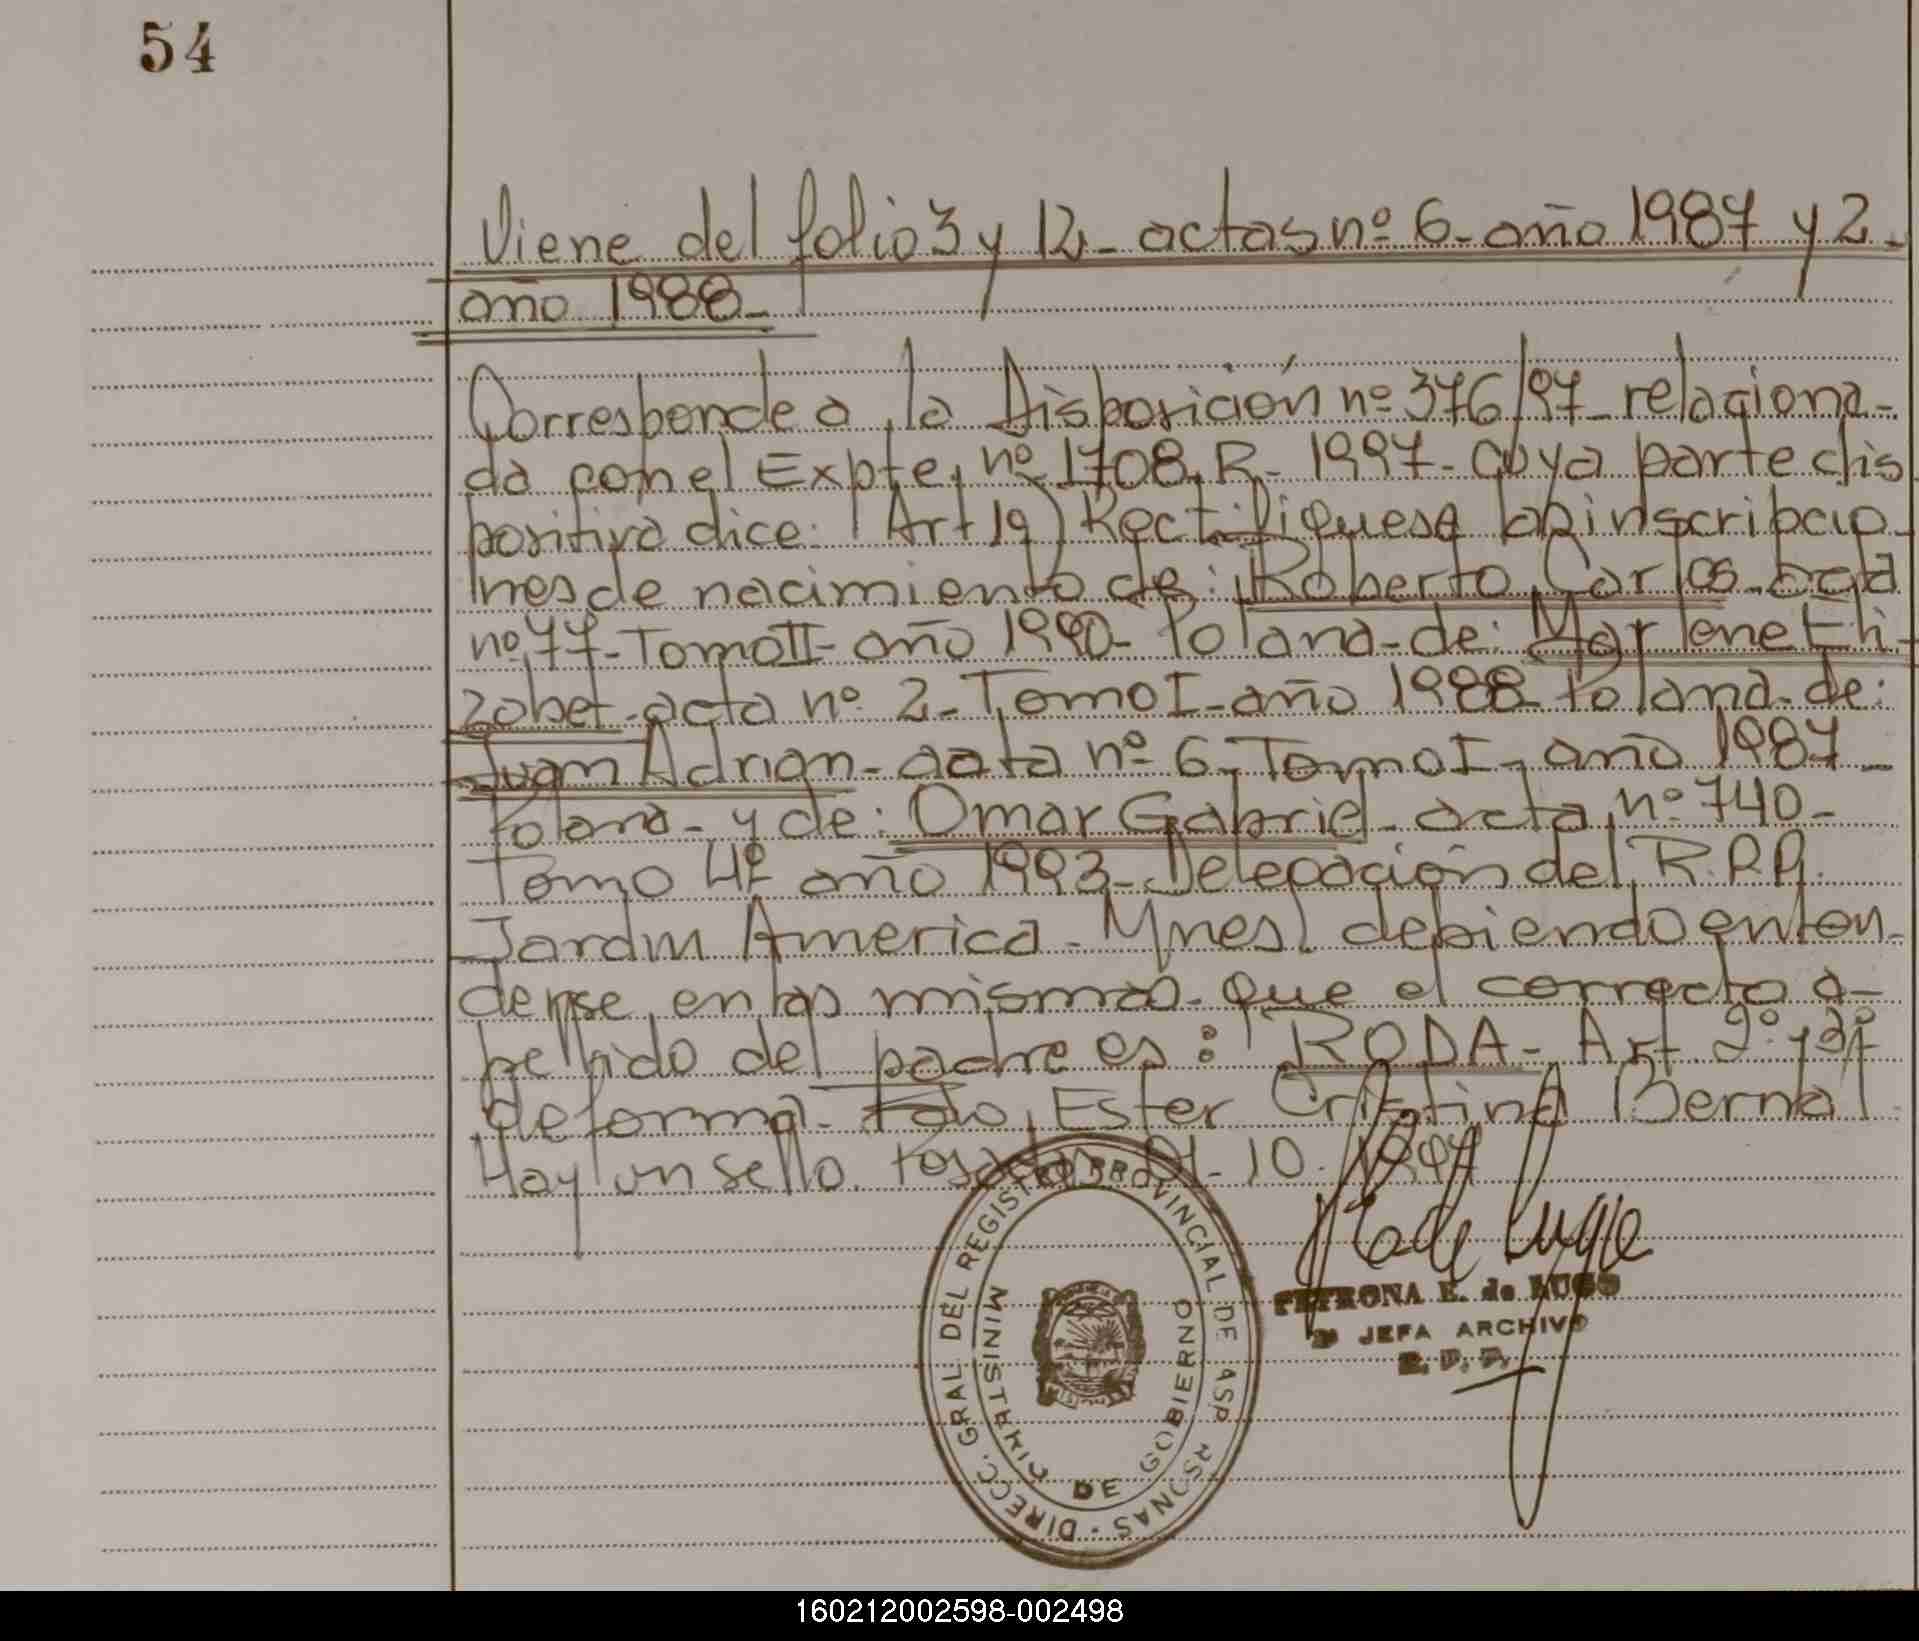 54
Viene del folio 3 y 12- actas nº 6- año 1987 y 2-
año 1988-
Corresponde a la Disposición nº 376/97- relaciona-
da con el Expte, nº 1708, R- 1997- cuya parte dis
positiva dice: Art 1º) Rectifiquese las inscripcio-
nes de nacimiento de: Roberto Carlos- acta
nº 77- Tomo II- año 1990- Polana- de: Marlene Eli-
zabet- acta nº 2- Tomo I- año 1988- Polana- de:
Juan Adrian- acta nº 6- Tomo I- año 1987-
Polana- y de: Omar Gabriel- acta, nº 740-
Tomo 4º año 1993- Delegación del R.P.P.
Jardin America- Mnes. debiendo enten-
derse en las mismas- que el correcto a-
pellido del padre es: RODA- Art 2º y 3º
de forma- Fdo, Ester Cristina Bernal.
Hay un sello. Posadas 10. 1997
DIRECC. GRAL DEL REGISTRO PROVINCIAL DE LAS PERSONAS
MINISTERIO DE GOBIERNO
PETRONA E. de LUGO
JEFA ARCHIVO
R. P. P.
160212002598-002498